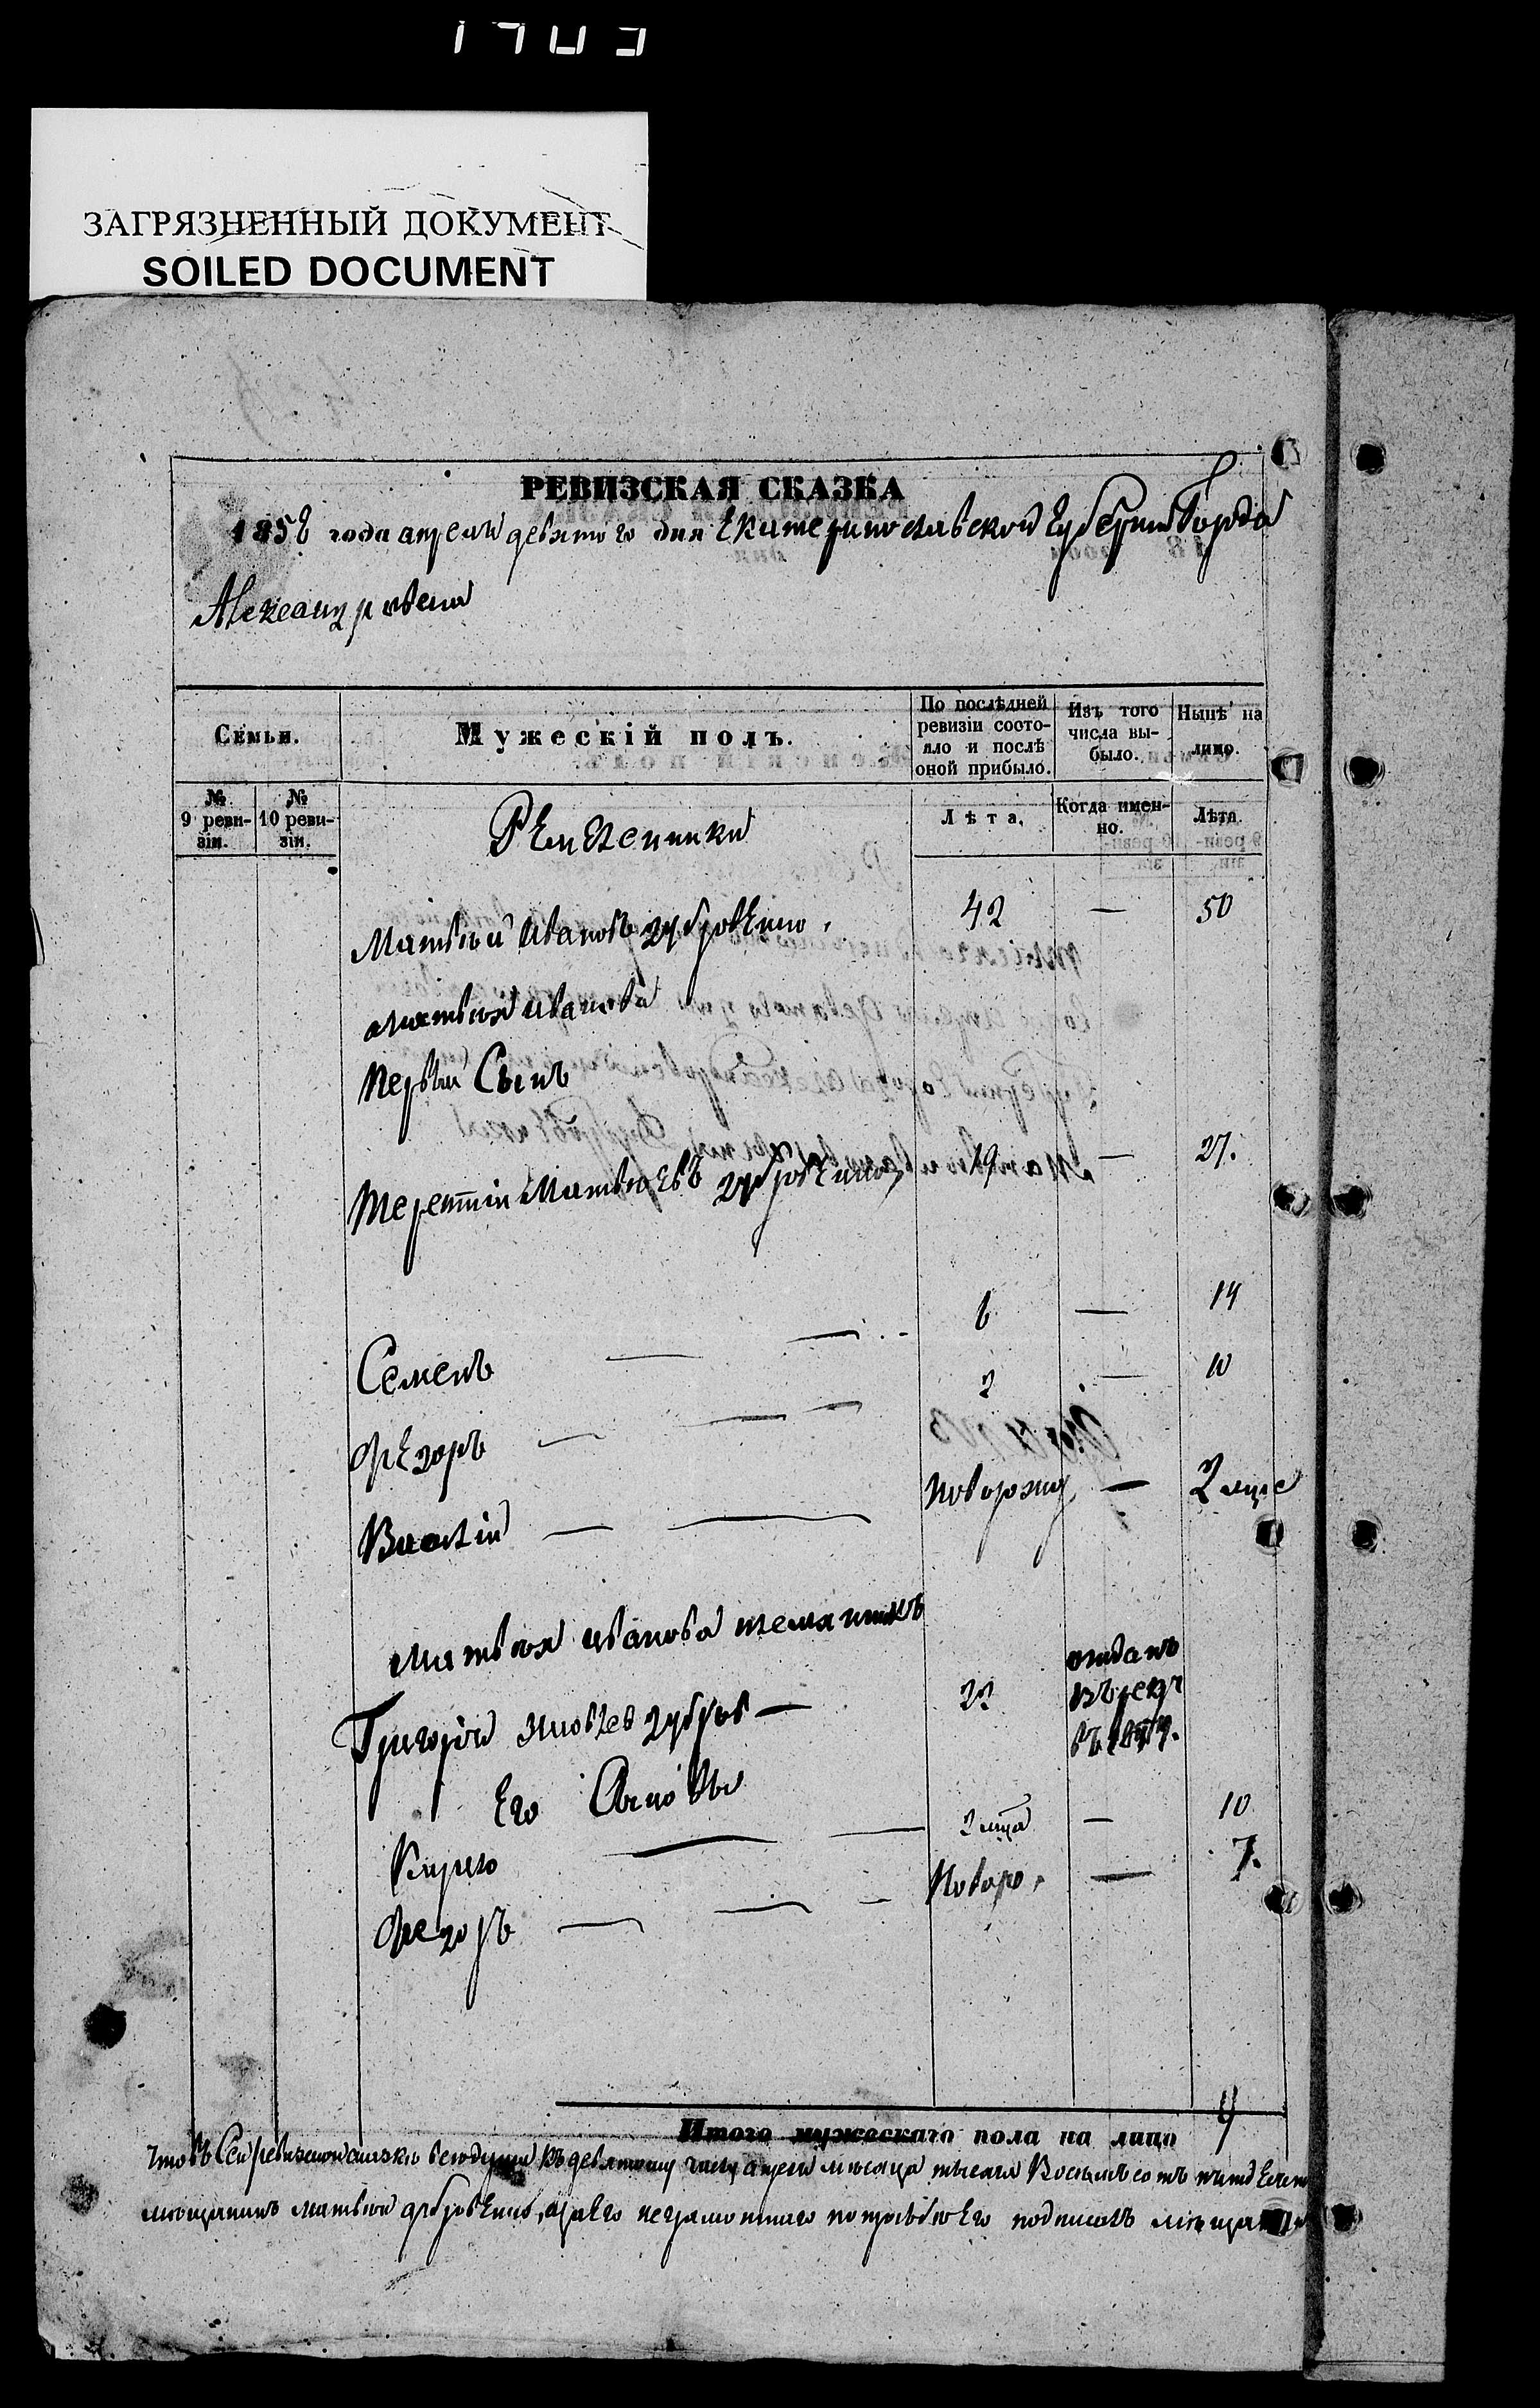 ЗАГРЯЗНЕННЫЙ ДОКУМЕНТ
SOILED DOCUMENT
РЕВИЗСКАЯ СКАЗКА
1858 года апреля девятого дня Екатеринославской губернии города
Александровска
Семьи.
Мужескій полъ.
По послѣдней ревизіи состояло и послѣ оной прибыло.
Изъ того числа выбыло.
Нынѣ на лицо.
№ 9 ревизіи.
№ 10 ревизіи.
Лѣта.
Когда именно.
Лѣта.
Матвѣй Ивановъ Дубровѣнко 42 — 50
Матвѣя Иванова
первый Сынъ
Терентій Матвѣевъ Дубровѣнко 19 — 27.
Семенъ — — 6 — 14
Федоръ — — — 2 — 10
Василій — — новорожд — 2 мце
Матвѣя Иванова племянникъ
Григорій Дубров — 22 отданъ въ рекр
Его Сыновья
Кирило — — 2 мца — 10
Федоръ — — — новоро. — 7.
Итого мужескаго пола на лицо 9
Что въ Сей ревизской сказкѣ всѣ души къ девятому числу апреля мѣсяца тысяча Восемьсотъ
мѣщанинъ Матвѣй Дубровѣнко, а за его неграмотнаго по прозбѣ Его подписалъ мѣщанинъ